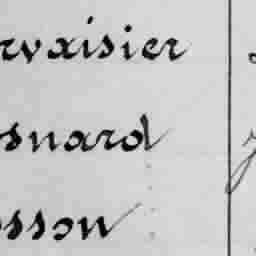 rvaisier
snard
sson